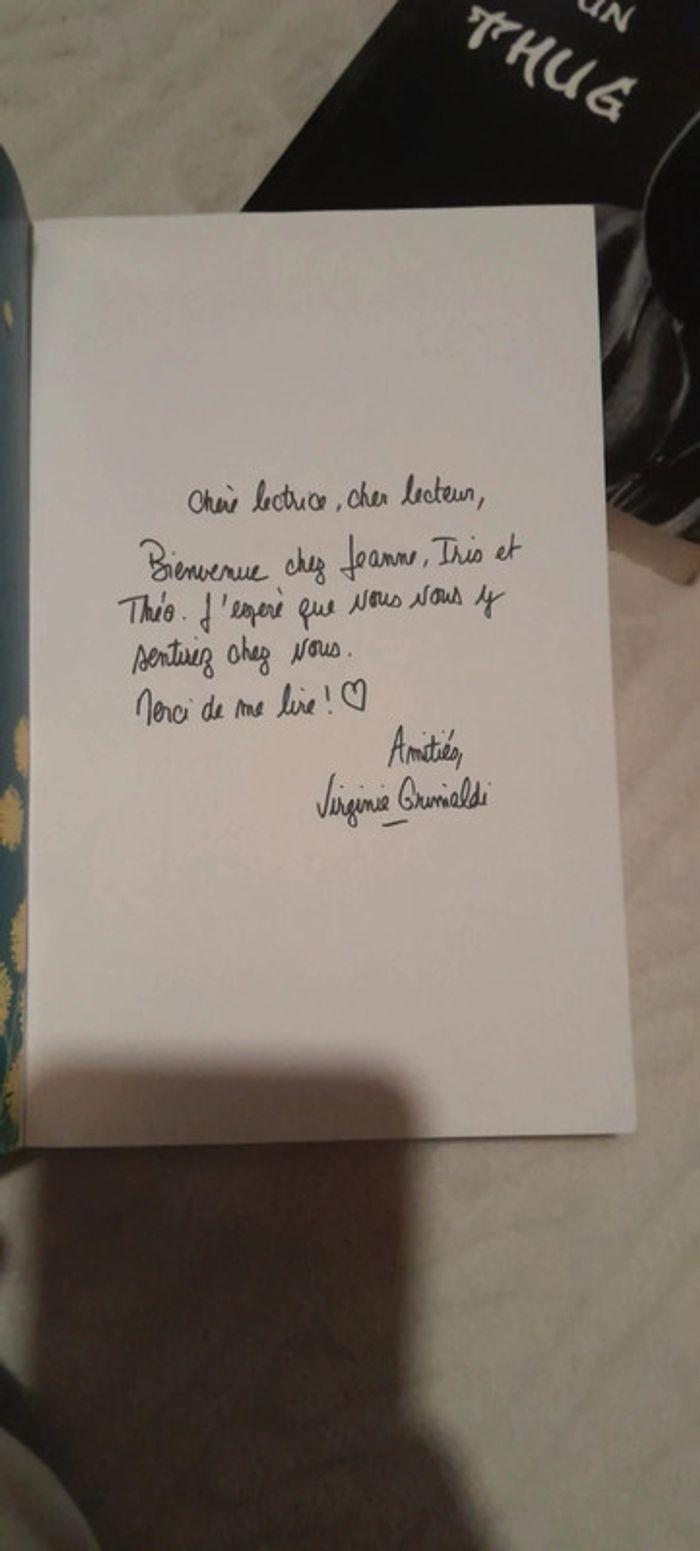 UN
THUG
Chère lectrice, cher lecteur,
Bienvenue chez Jeanne, Iris et
Théo. J'espère que vous vous y
sentirez chez vous.
Merci de me lire ! ♡
Amitiés,
Virginie Grimaldi